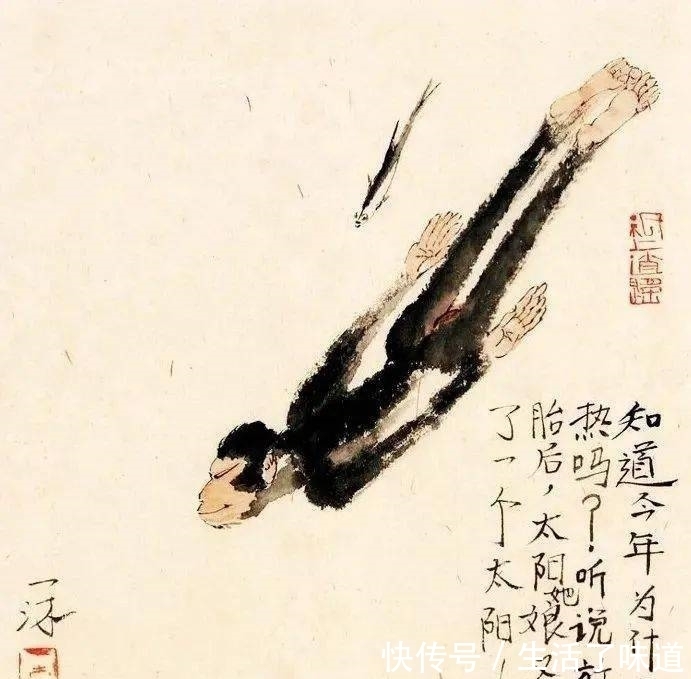 知道今年为什
热吗？听说放
胎后，太阳她娘又
了一个太阳！
一沫
快传号 / 生活了味道